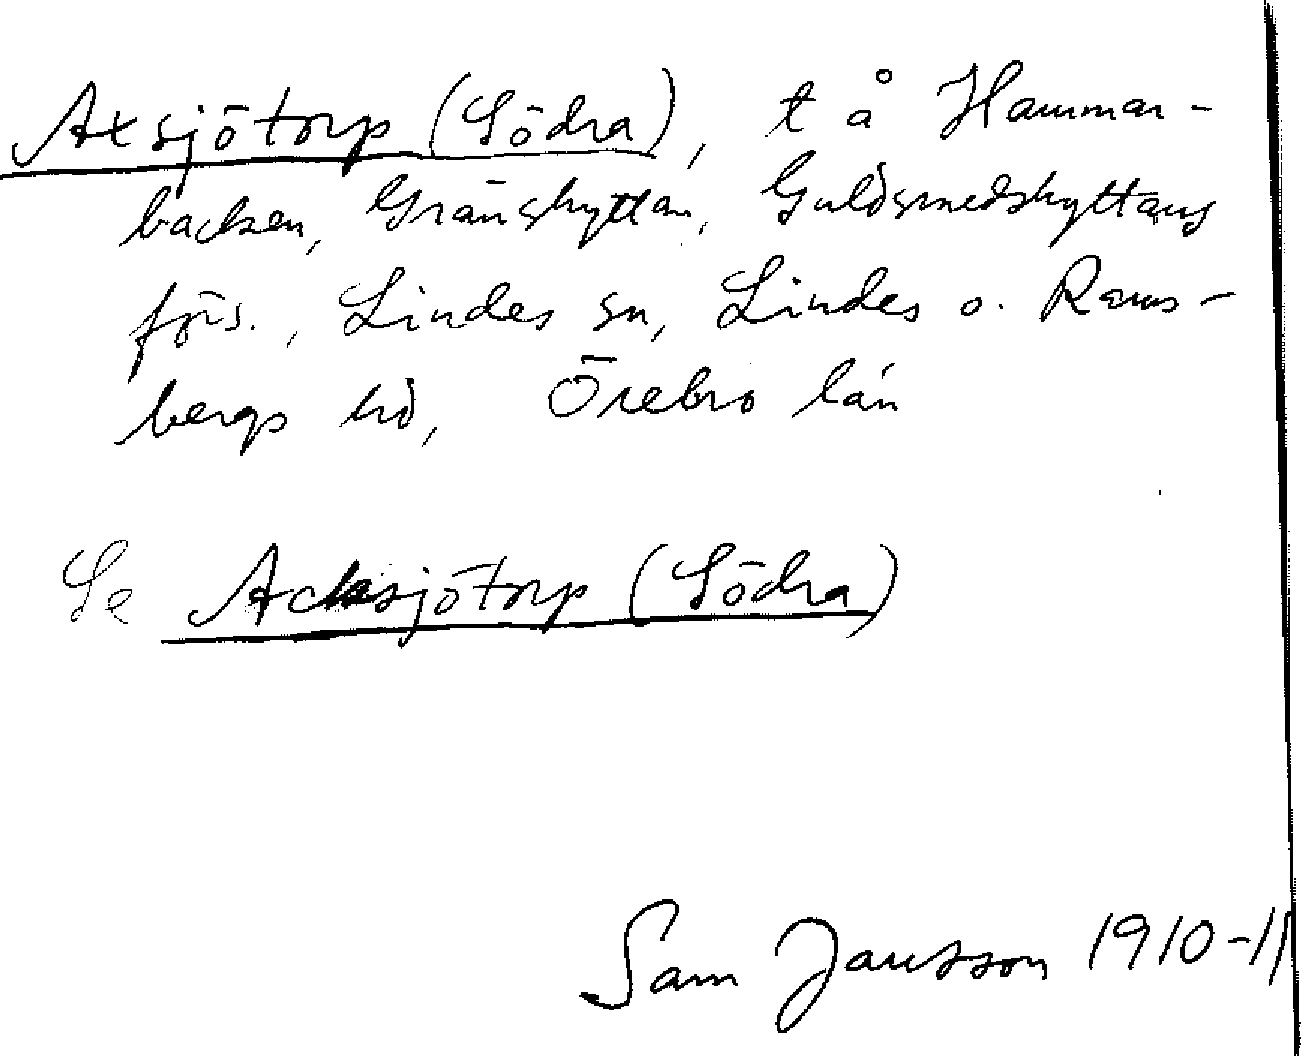 Axsjötorp (Södra), t å Hammar-
backen, Gränshyttan, Guldsmedshyttans
förs., Lindes sn, Lindes o. Rams-
bergs hd, Örebro län
Se Acksjötorp (Södra)
Sam Jansson 1910-11